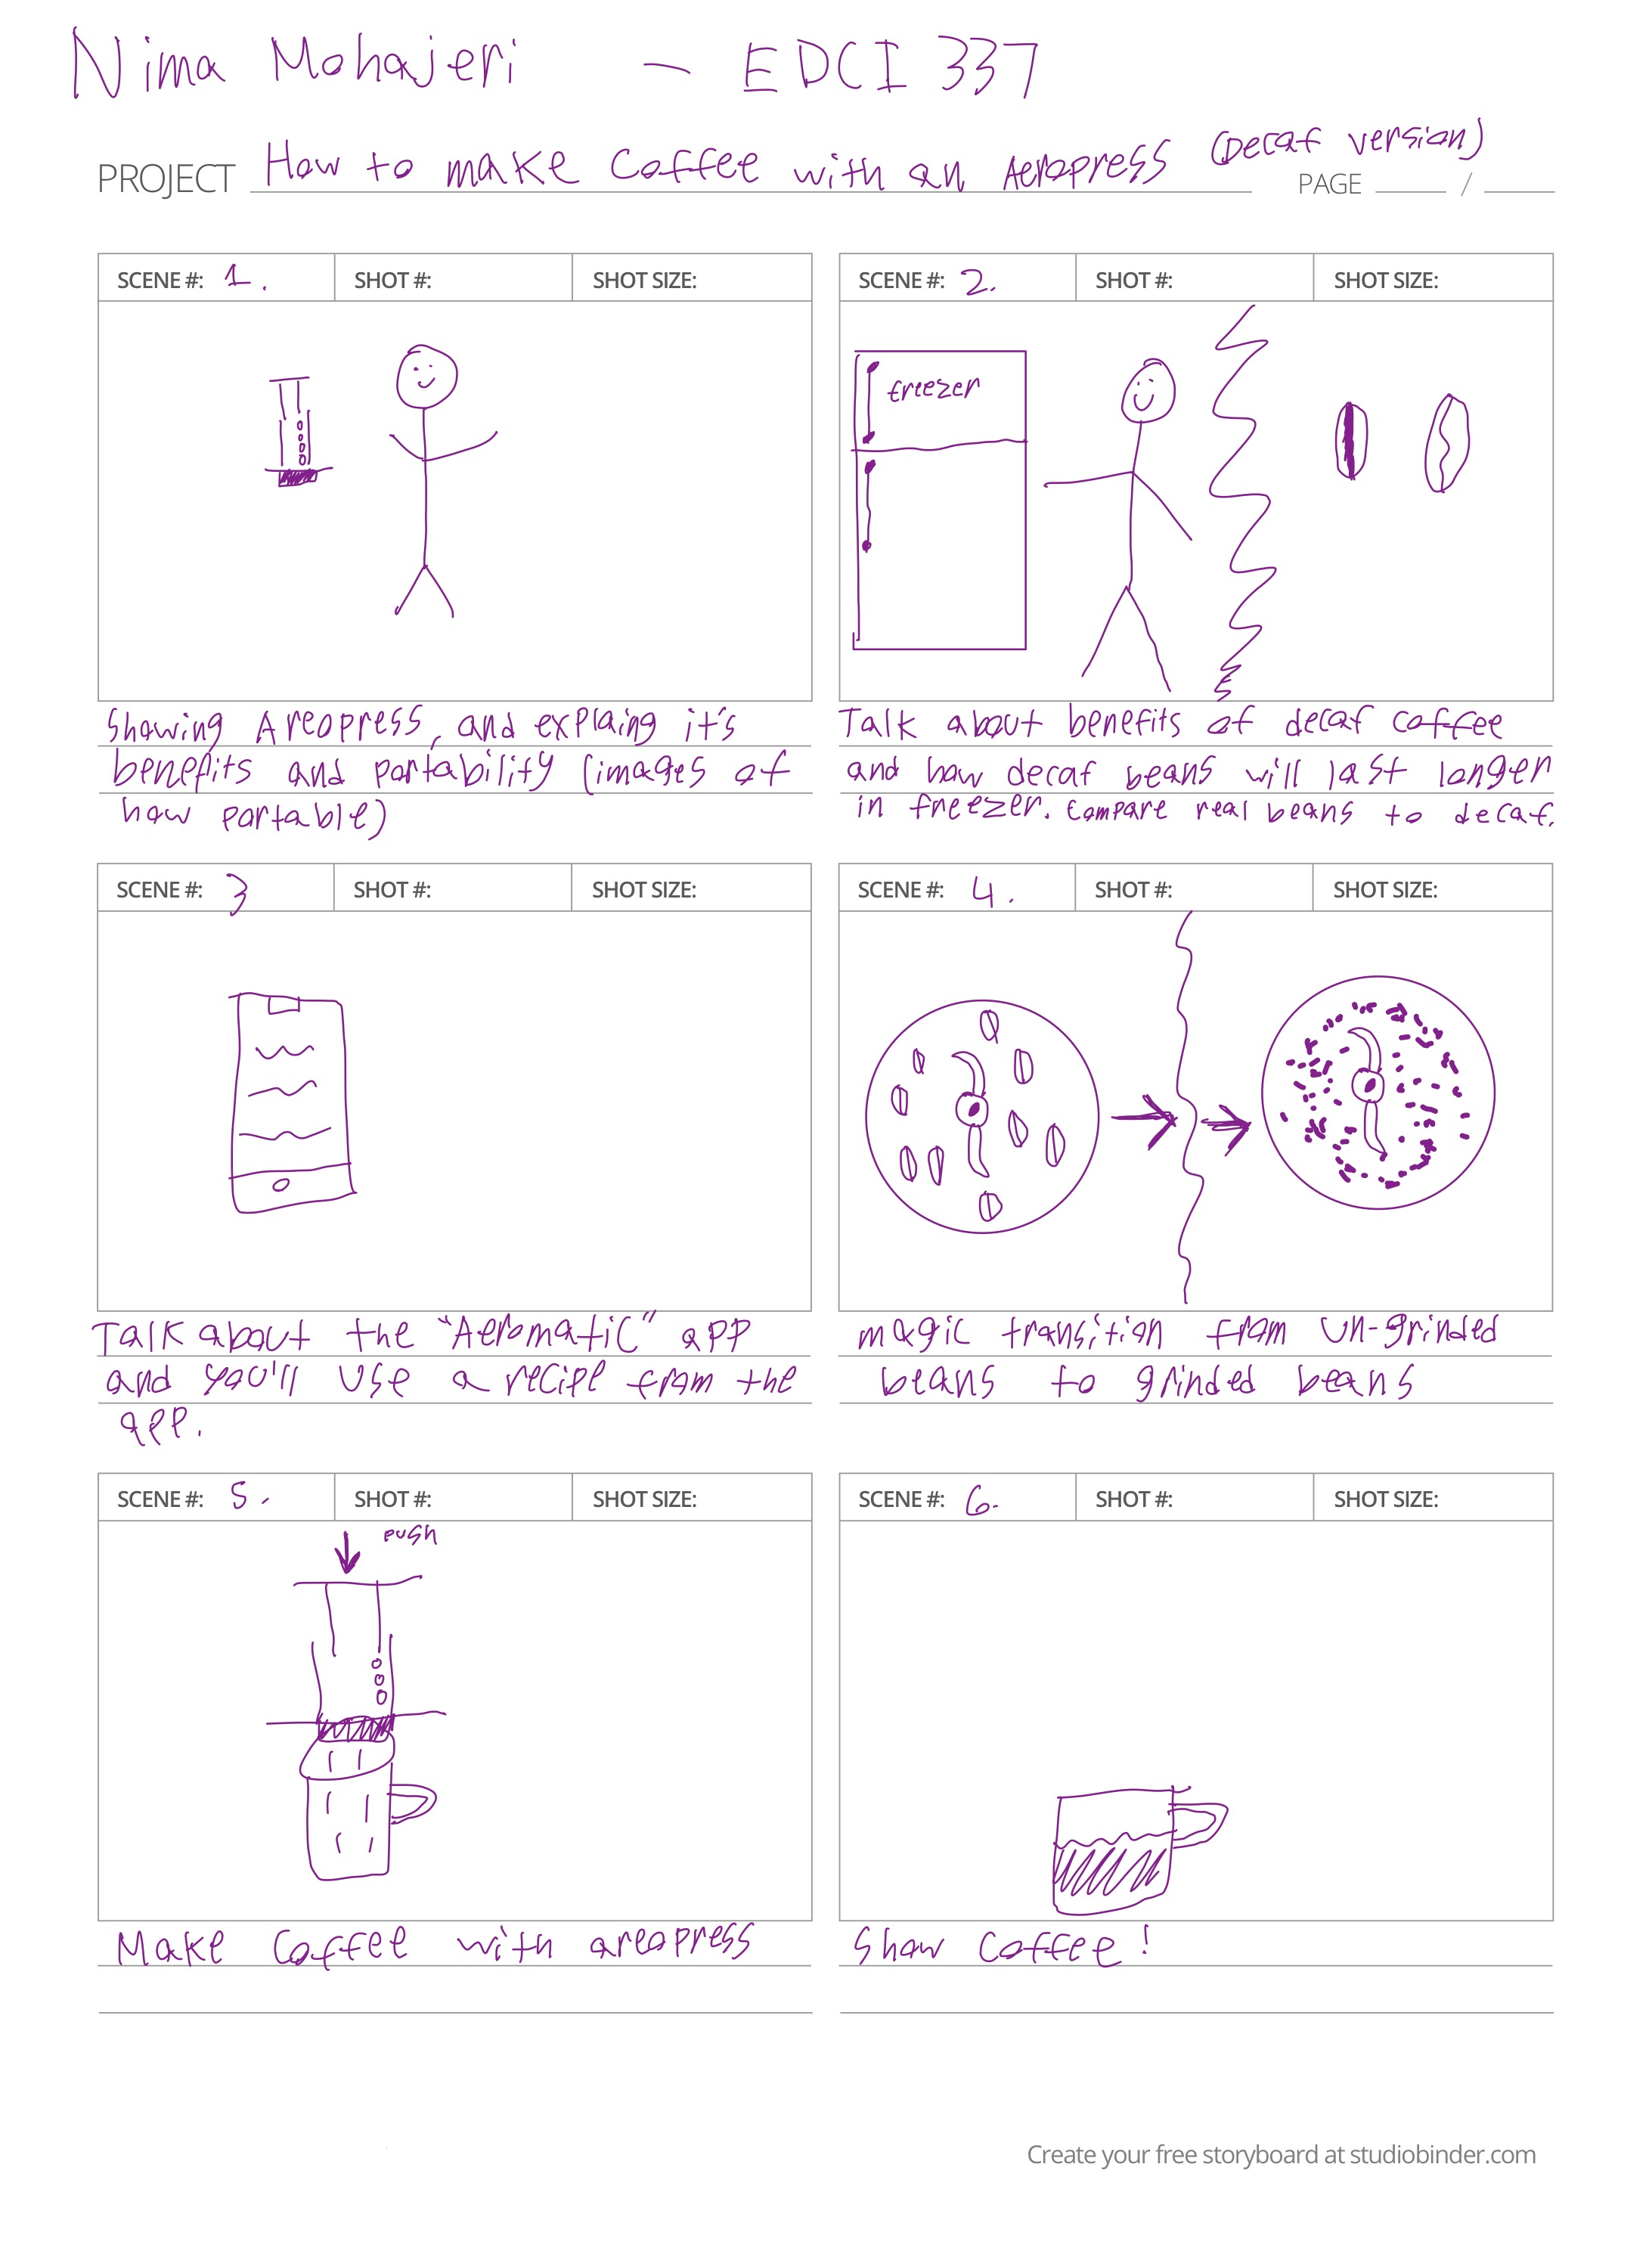 Nima Mohajeri — EDCI 337
PROJECT How to make Coffee with an Aeropress (Decaf version)
PAGE ____ / ____
SCENE #: 1. SHOT #: SHOT SIZE:
Showing Areopress, and explaing it's
benefits and portability (images of
how portable)
SCENE #: 2. SHOT #: SHOT SIZE:
freezer
Talk about benefits of decaf coffee
and how decaf beans will last longer
in freezer. Compare real beans to decaf.
SCENE #: 3 SHOT #: SHOT SIZE:
Talk about the "Aeromatic" app
and you'll use a recipe from the
app.
SCENE #: 4. SHOT #: SHOT SIZE:
magic transition from un-grinded
beans to grinded beans
SCENE #: 5. SHOT #: SHOT SIZE:
push
Make Coffee with areopress
SCENE #: 6. SHOT #: SHOT SIZE:
Show Coffee!
Create your free storyboard at studiobinder.com